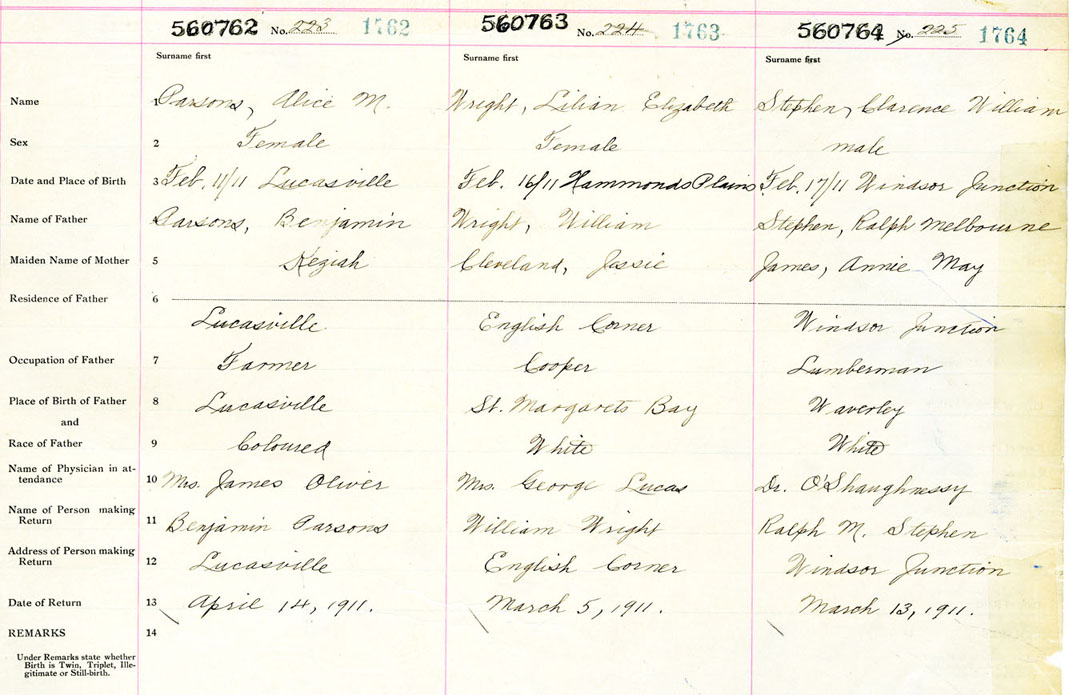 560762 No. 223 1762 560763 No. 224 1763 560764 No. 225 1764
Surname first Surname first Surname first
Name 1 Parsons, Alice M. Wright, Lilian Elizabeth Stephen, Clarence William
Sex 2 Female Female male
Date and Place of Birth 3 Feb. 11/11 Lucasville Feb. 16/11 Hammonds Plains Feb. 17/11 Windsor Junction
Name of Father 4 Parsons, Benjamin Wright, William Stephen, Ralph Melbourne
Maiden Name of Mother 5 Keziah Cleveland, Jessie James, Annie May
Residence of Father 6
Lucasville English Corner Windsor Junction
Occupation of Father 7 Farmer Cooper Lumberman
Place of Birth of Father 8 Lucasville St. Margarets Bay Waverley
and
Race of Father 9 Coloured White White
Name of Physician in at-
tendance 10 Mrs. James Oliver Mrs. George Lucas Dr. O'Shaughnessy
Name of Person making
Return 11 Benjamin Parsons William Wright Ralph M. Stephen
Address of Person making
Return 12 Lucasville English Corner Windsor Junction
Date of Return 13 April 14, 1911. March 5, 1911. March 13, 1911.
REMARKS 14
Under Remarks state whether
Birth is Twin, Triplet, Ille-
gitimate or Still-birth.